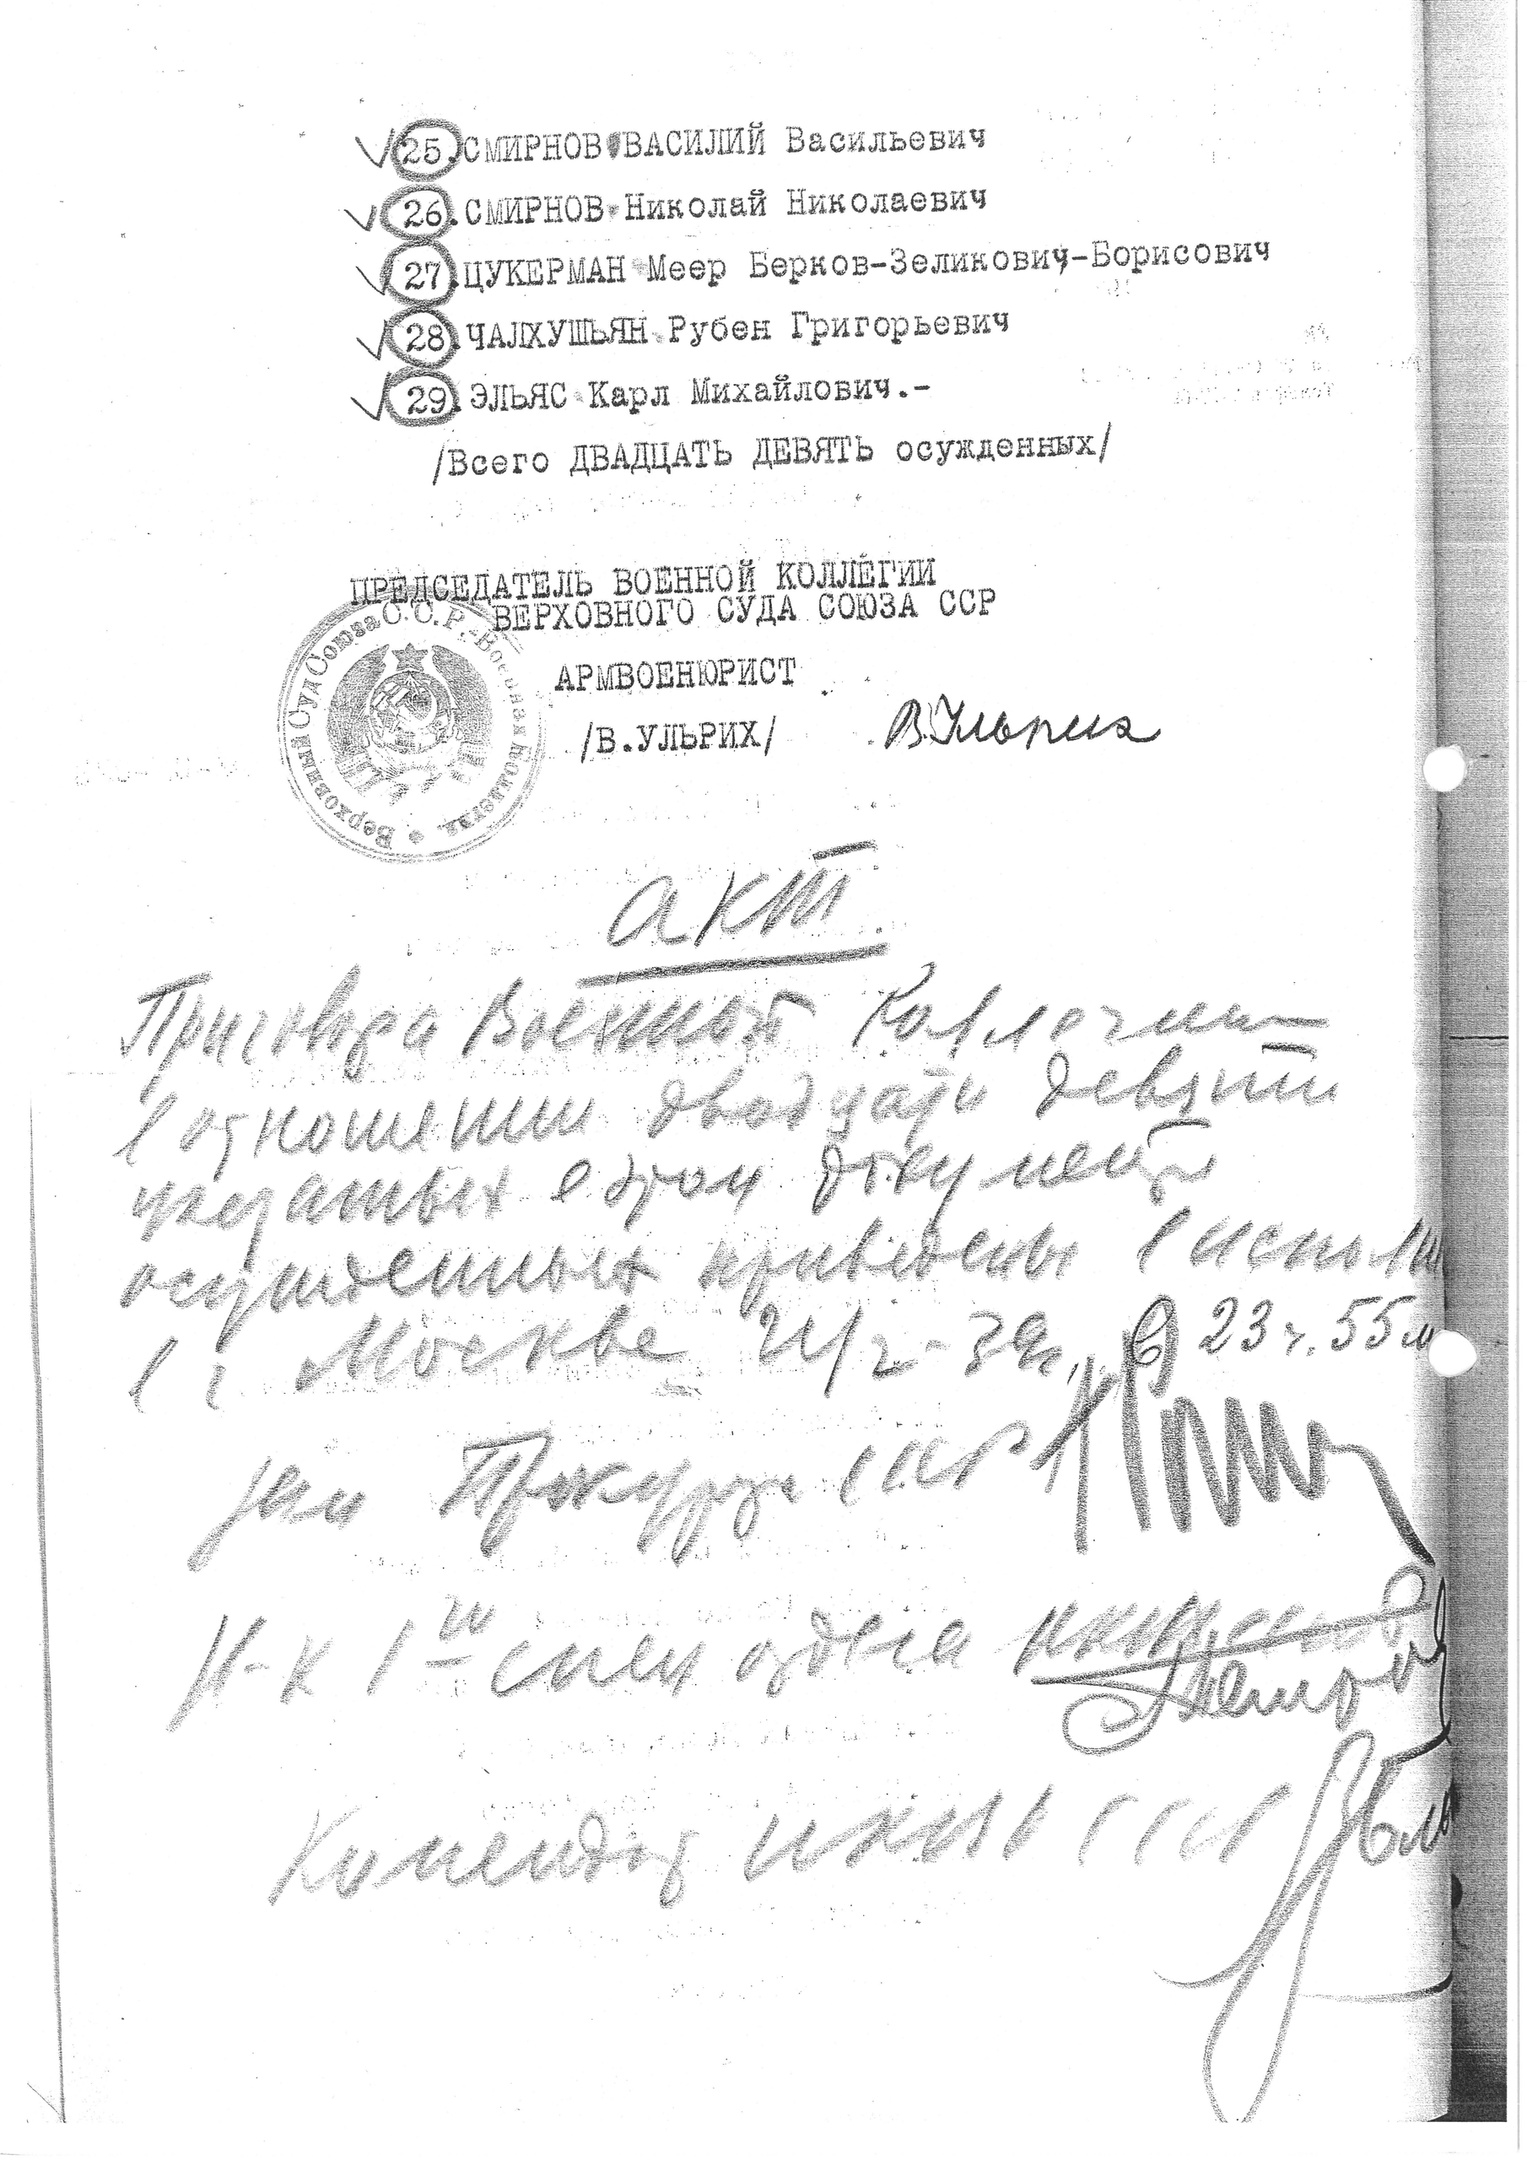 25.СМИРНОВ ВАСИЛИЙ Васильевич
26.СМИРНОВ Николай Николаевич
27.ЦУКЕРМАН Меер Берков-Зеликович-Борисович
28.ЧАЛХУШЬЯН Рубен Григорьевич
29.ЭЛЬЯС Карл Михайлович.-
/Всего ДВАДЦАТЬ ДЕВЯТЬ осужденных/
ПРЕДСЕДАТЕЛЬ ВОЕННОЙ КОЛЛЕГИИ
ВЕРХОВНОГО СУДА СОЮЗА ССР
Верховный Суд Союза С.С.Р.-Военная Коллегия.
АРМВОЕНЮРИСТ
/В.УЛЬРИХ/ В.Ульрих
акт
Приговора Военной Коллегии
в отношении двадцати девяти
указанных в этом документе
осужденных приведены в исполн
в г. Москве 39г. в 23 ч. 55 м
зам Прокурора СССР
Н-к 1го спец отдела НКВД СССР
Комендант НКВД СССР